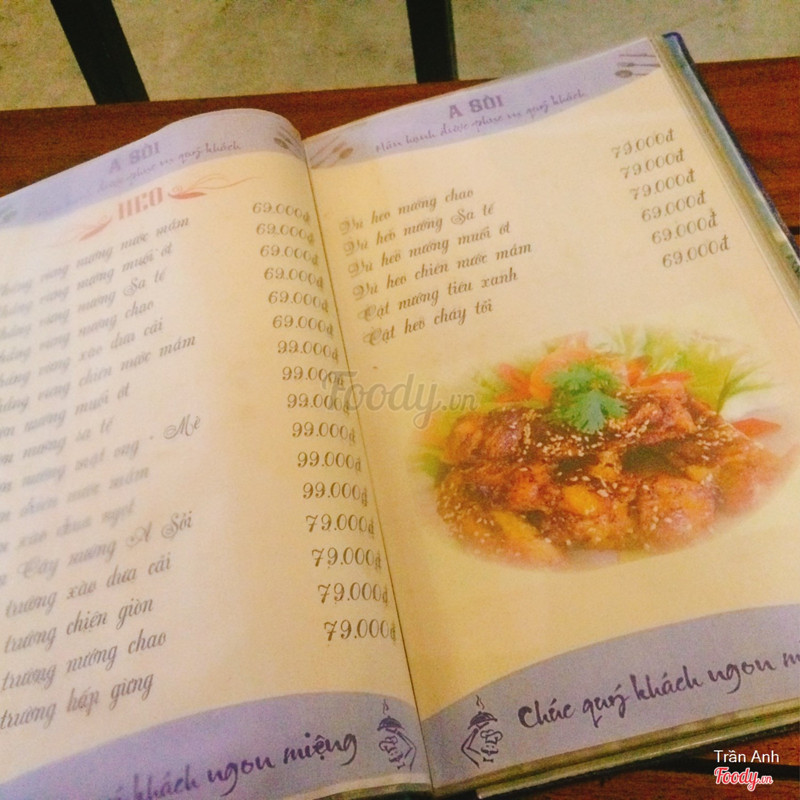 A SÒI
quý khách
HEO
nướng nước mắm 69.000đ
nướng muối ớt 69.000đ
nướng Sa tế 69.000đ
nướng chao 69.000đ
xào dưa cải 69.000đ
chiên nước mắm 69.000đ
nướng muối ớt 99.000đ
nướng sa tế 99.000đ
nướng mật ong - Mè 99.000đ
chiên nước mắm 99.000đ
xào chua ngọt 99.000đ
nướng A Sòi 99.000đ
trường xào dưa cải 79.000đ
trường chiên giòn 79.000đ
trường nướng chao 79.000đ
trường hấp gừng 79.000đ
khách ngon miệng
A SÒI
Hân hạnh được phục vụ quý khách
Vú heo nướng chao 79.000đ
Vú heo nướng Sa tế 79.000đ
Vú heo nướng muối ớt 79.000đ
Vú heo chiên nước mắm 69.000đ
Cật nướng tiêu xanh 69.000đ
Cật heo cháy tỏi 69.000đ
Chúc quý khách ngon
Foody.vn
Trần Anh
Foody.vn